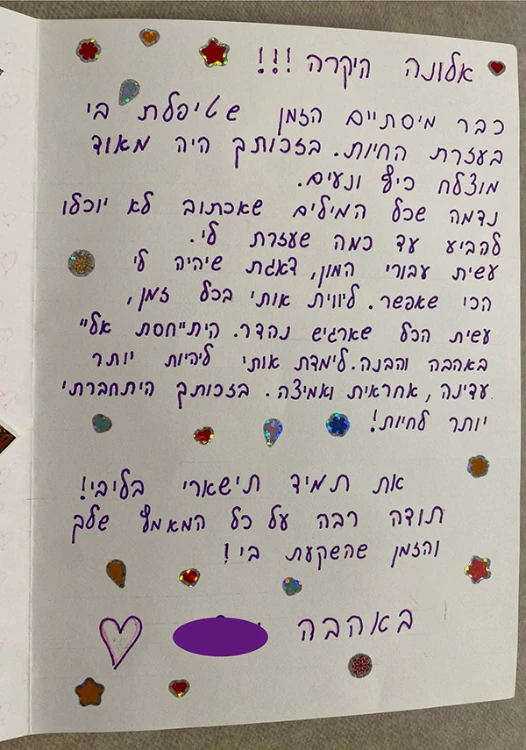 אלונה היקרה!!!
כבר מיסתיים הזמן שטיפלת בי
בעזרת החיות. בזכותך היה מאוד
מוצלח כיף ונעים.
נדמה שכל המילים שאכתוב לא יוכלו
להביע עד כמה שעזרת לי.
עשית עבורי המון, דאגת שיהיה לי
הכי שאפשר. ליווית אותי בכל זמן,
עשית הכל שארגיש נהדר. הית״חסת אלי״
באהבה והבנה. לימדת אותי ליהיות יותר
עדינה, אחראית ואמיצה. בזכותך היתחברתי
יותר לחיות!
את תמיד תישארי בליבי!
תודה רבה על כל המאמץ שלך
והזמן שהשקעת בי!
באהבה